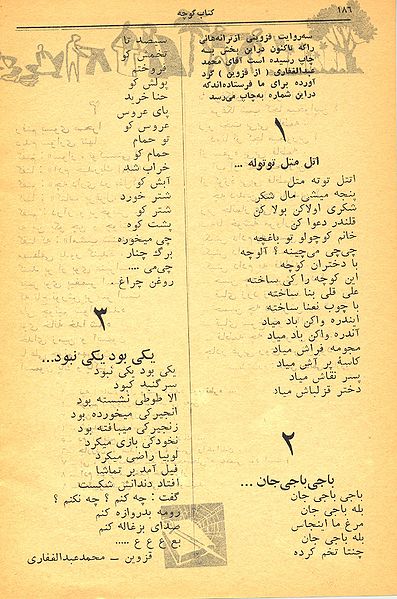 ۱۸۶
کتاب کوچه
سه‌روایت قزوینی ازترانه‌هائی
راکه تاکنون دراین بخش به
چاپ رسیده است آقای محمد
عبدالغفاری ( از قزوین ) گرد
آورده برای ما فرستاده‌اندکه
دراین شماره به‌چاپ می‌رسد
۱
اتل متل توتوله ...
اتتل توته متل
پنجه میشی مال شکر
شکری اولاکن بولا کن
قلندر دعوا کن
خانم کوچولو تو باغچه
چی‌چی می‌چینه ؟ آلوچه
با دختران کوچه
این کوچه را کی ساخته
علی قلی بنا ساخته
با چوب نعنا ساخته
ایندره واکن باد میاد
آندره واکن باد میاد
مجومه فراش میاد
کاسهٔ پر آش میاد
پسر نقاش میاد
دختر قزلباش میاد
۲
باجی‌باجی‌جان ...
باجی باجی جان
بله باجی جان
مرغ ما اینجاس
بله باجی جان
چنتا تخم کرده
سیصد تا
تخمش کو
فروختم
پولش کو
حنا خرید
پای عروس
عروس کو
تو حمام
حمام کو
خراب شد
آبش کو
شتر خورد
شتر کو
پشت کوه
چی میخوره
برگ چنار
چی‌می ....
روغن چراغ .
۳
یکی بود یکی نبود...
یکی بود یکی نبود
سرگنبد کبود
الا طوطی نشسته بود
انجیرکی میخورده بود
زنجیرکی میبافته بود
نخودکی بازی میکرد
لوبیا راضی میکرد
فیل آمد بر تماشا
افتاد دندانش شکست
گفت : چه کنم ؟ چه نکنم ؟
رومه بدروازه کنم
صدای بزغاله کنم
بع ع ع ع .....
قزوین ــ محمدعبدالغفاری